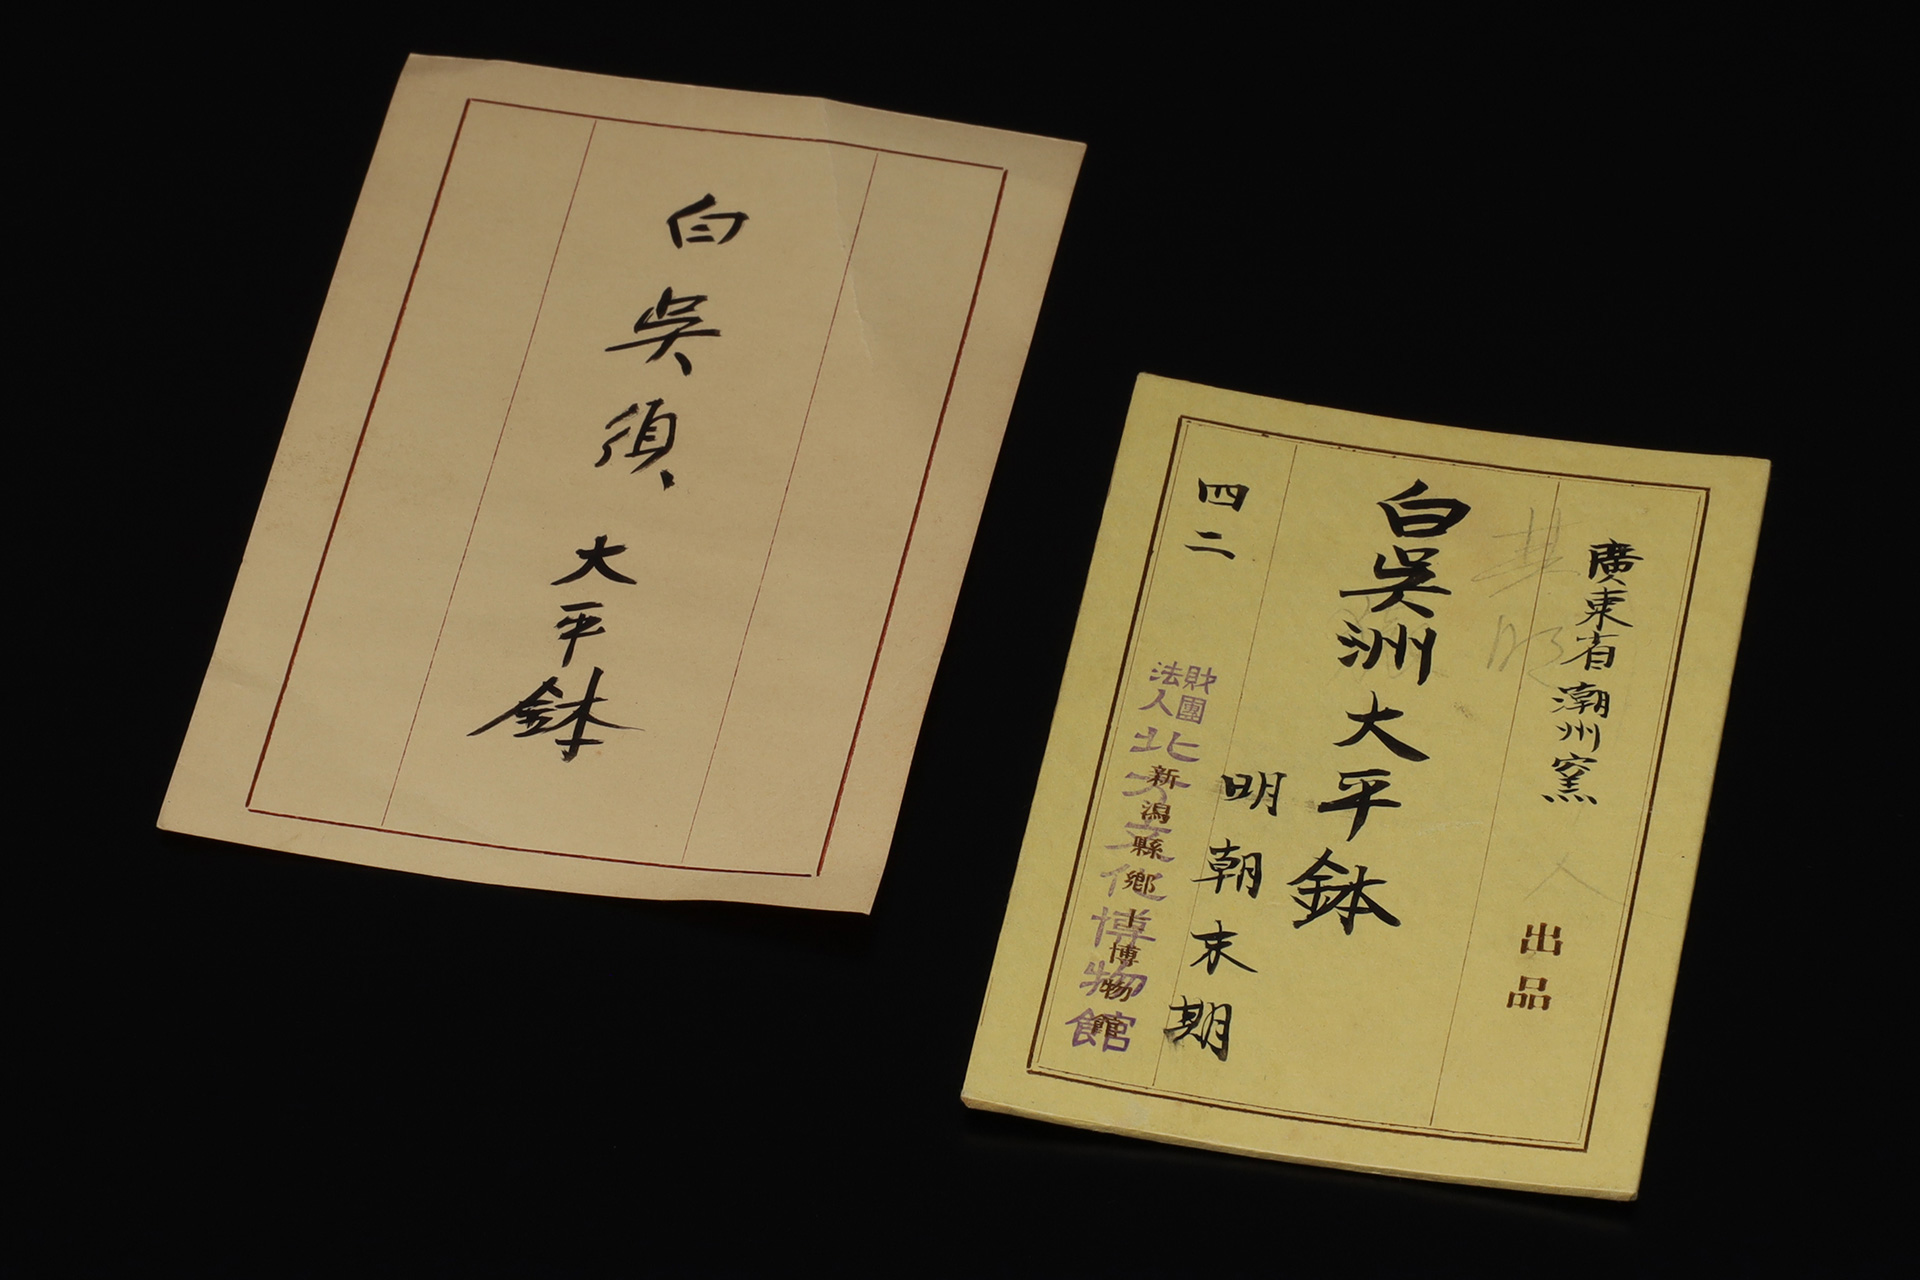 白吳須 大平鉢
廣東省潮州窯
出品
白吳洲大平鉢
明朝末期
四二
財團
法人
北方文化博物館
新潟縣鄉土博物館